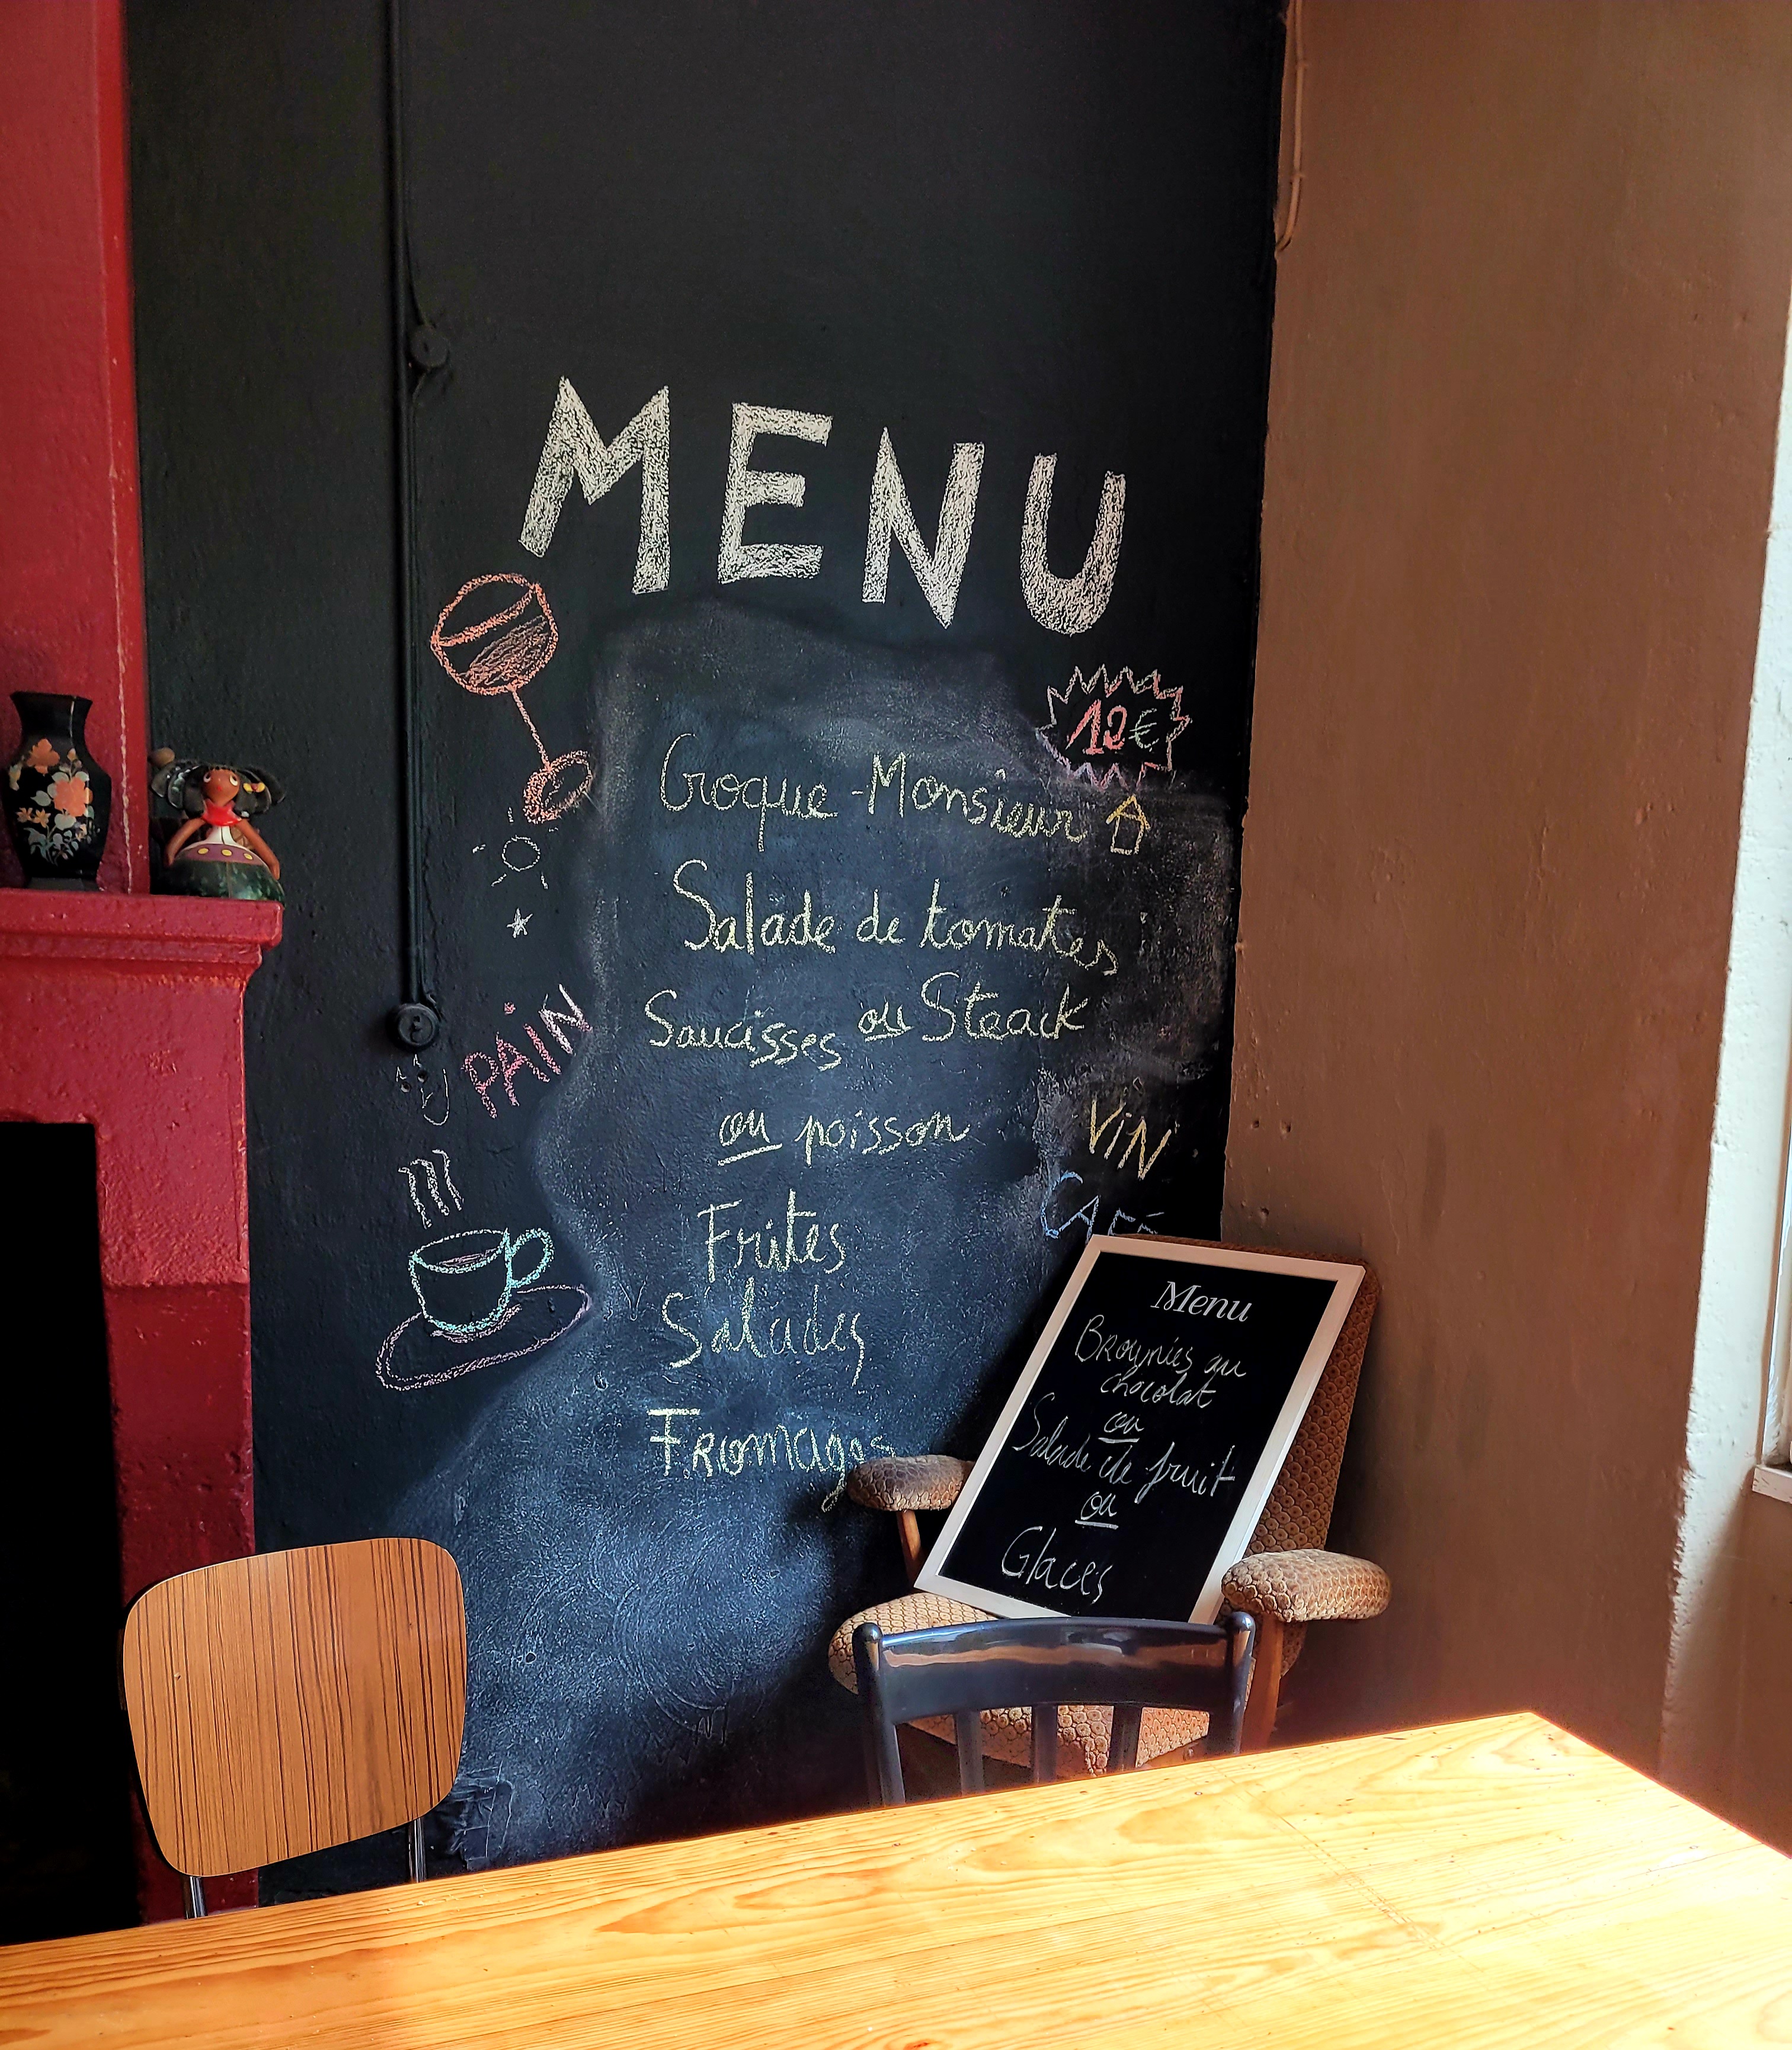 MENU
12€
Croque-Monsieur
Salade de tomates
Saucisses ou Steack
PAIN
ou poisson
VIN
CAFÉ
Frites
Salades
Fromages
Menu
Brownies au
chocolat
ou
Salade de fruit
ou
Glaces